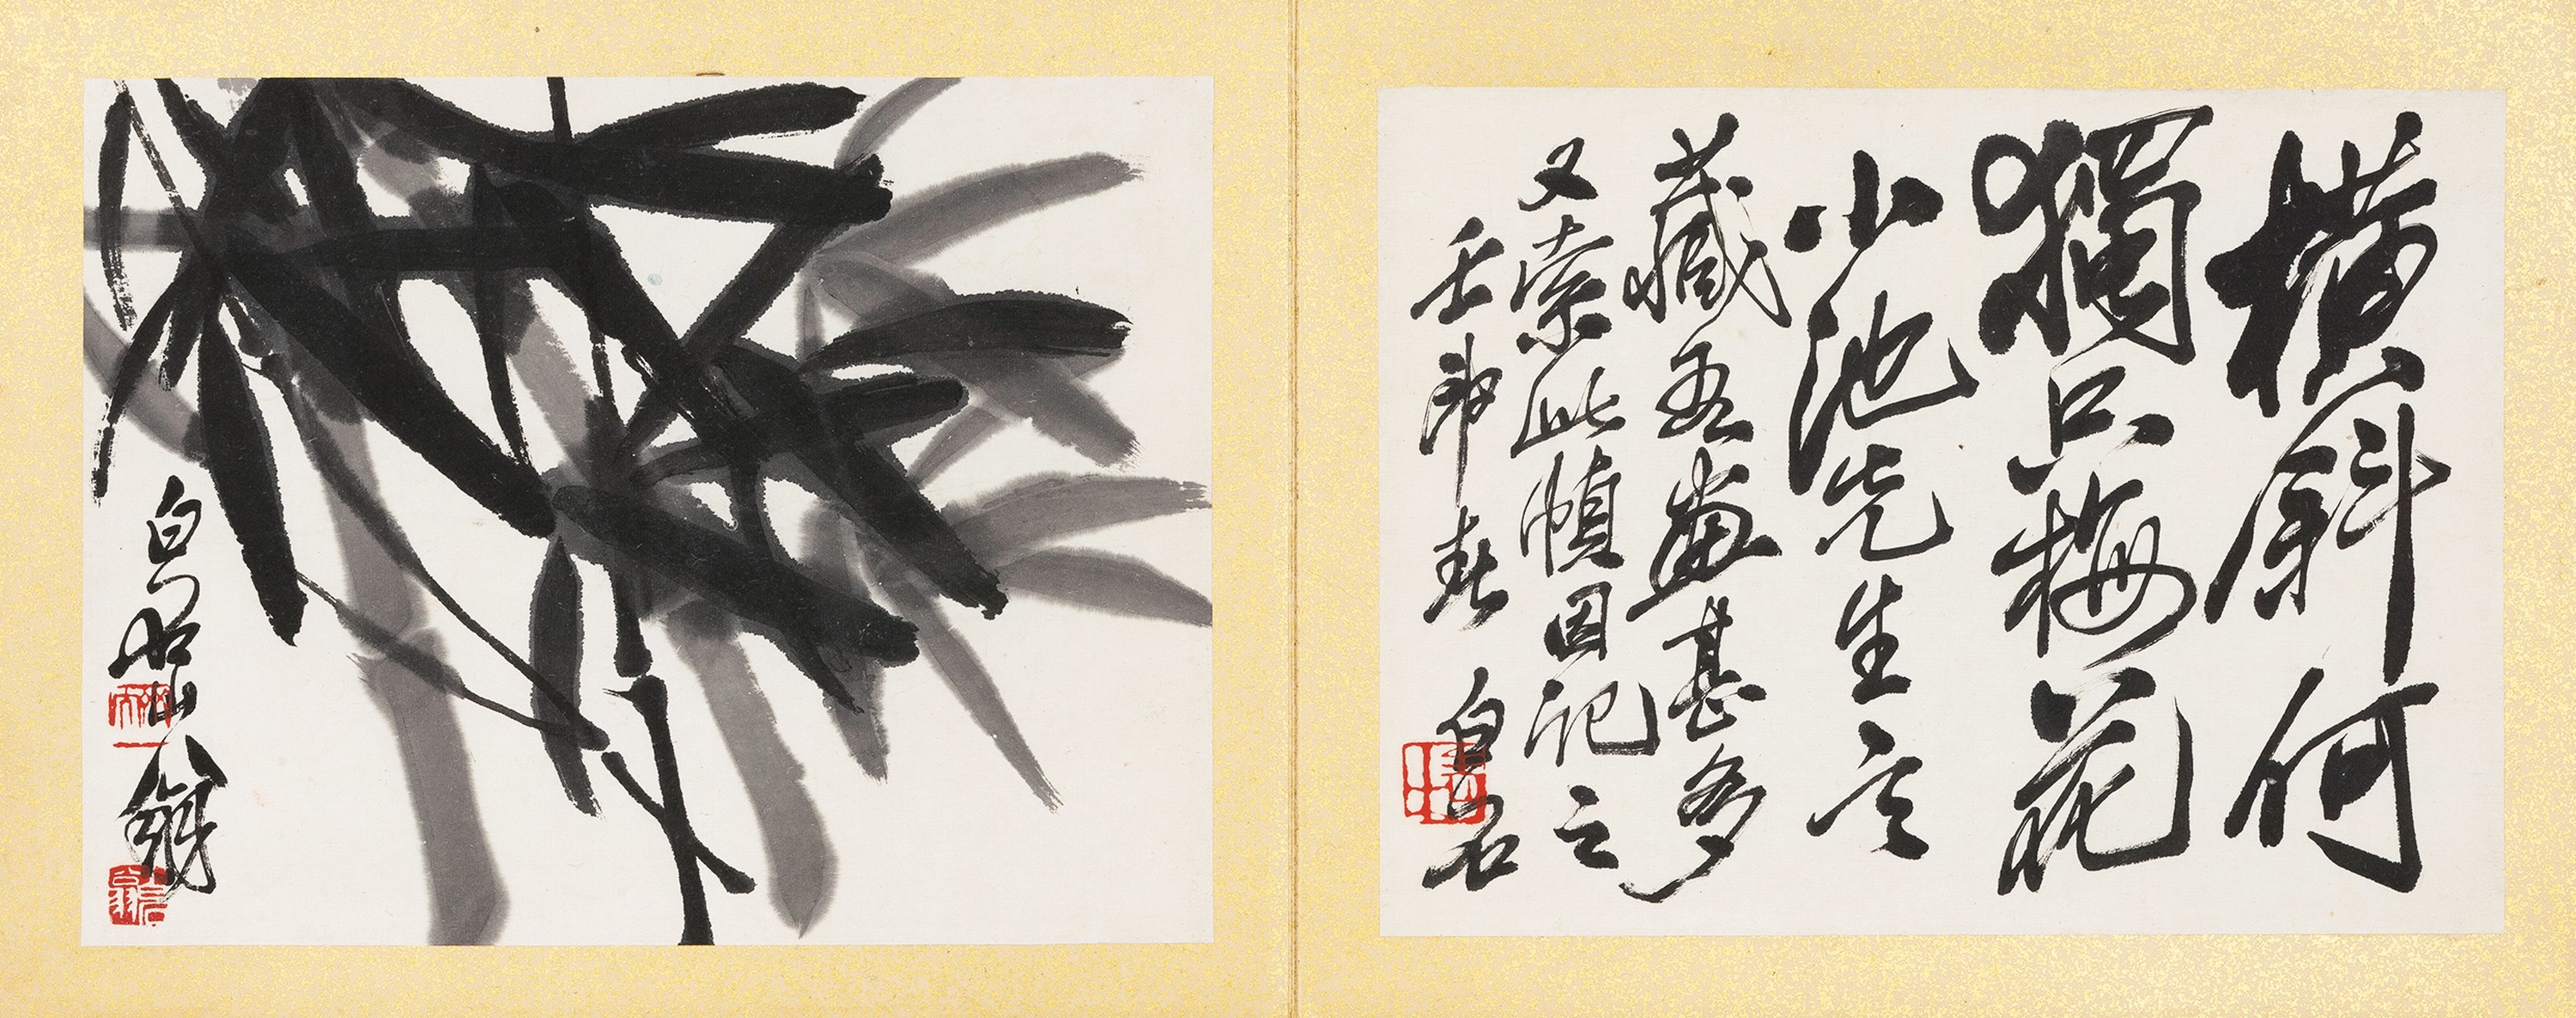 橫斜何
獨只梅花
小池先生言
藏吾畫甚多
又索此幀因記之
壬申春 白石
白石山翁
白石翁